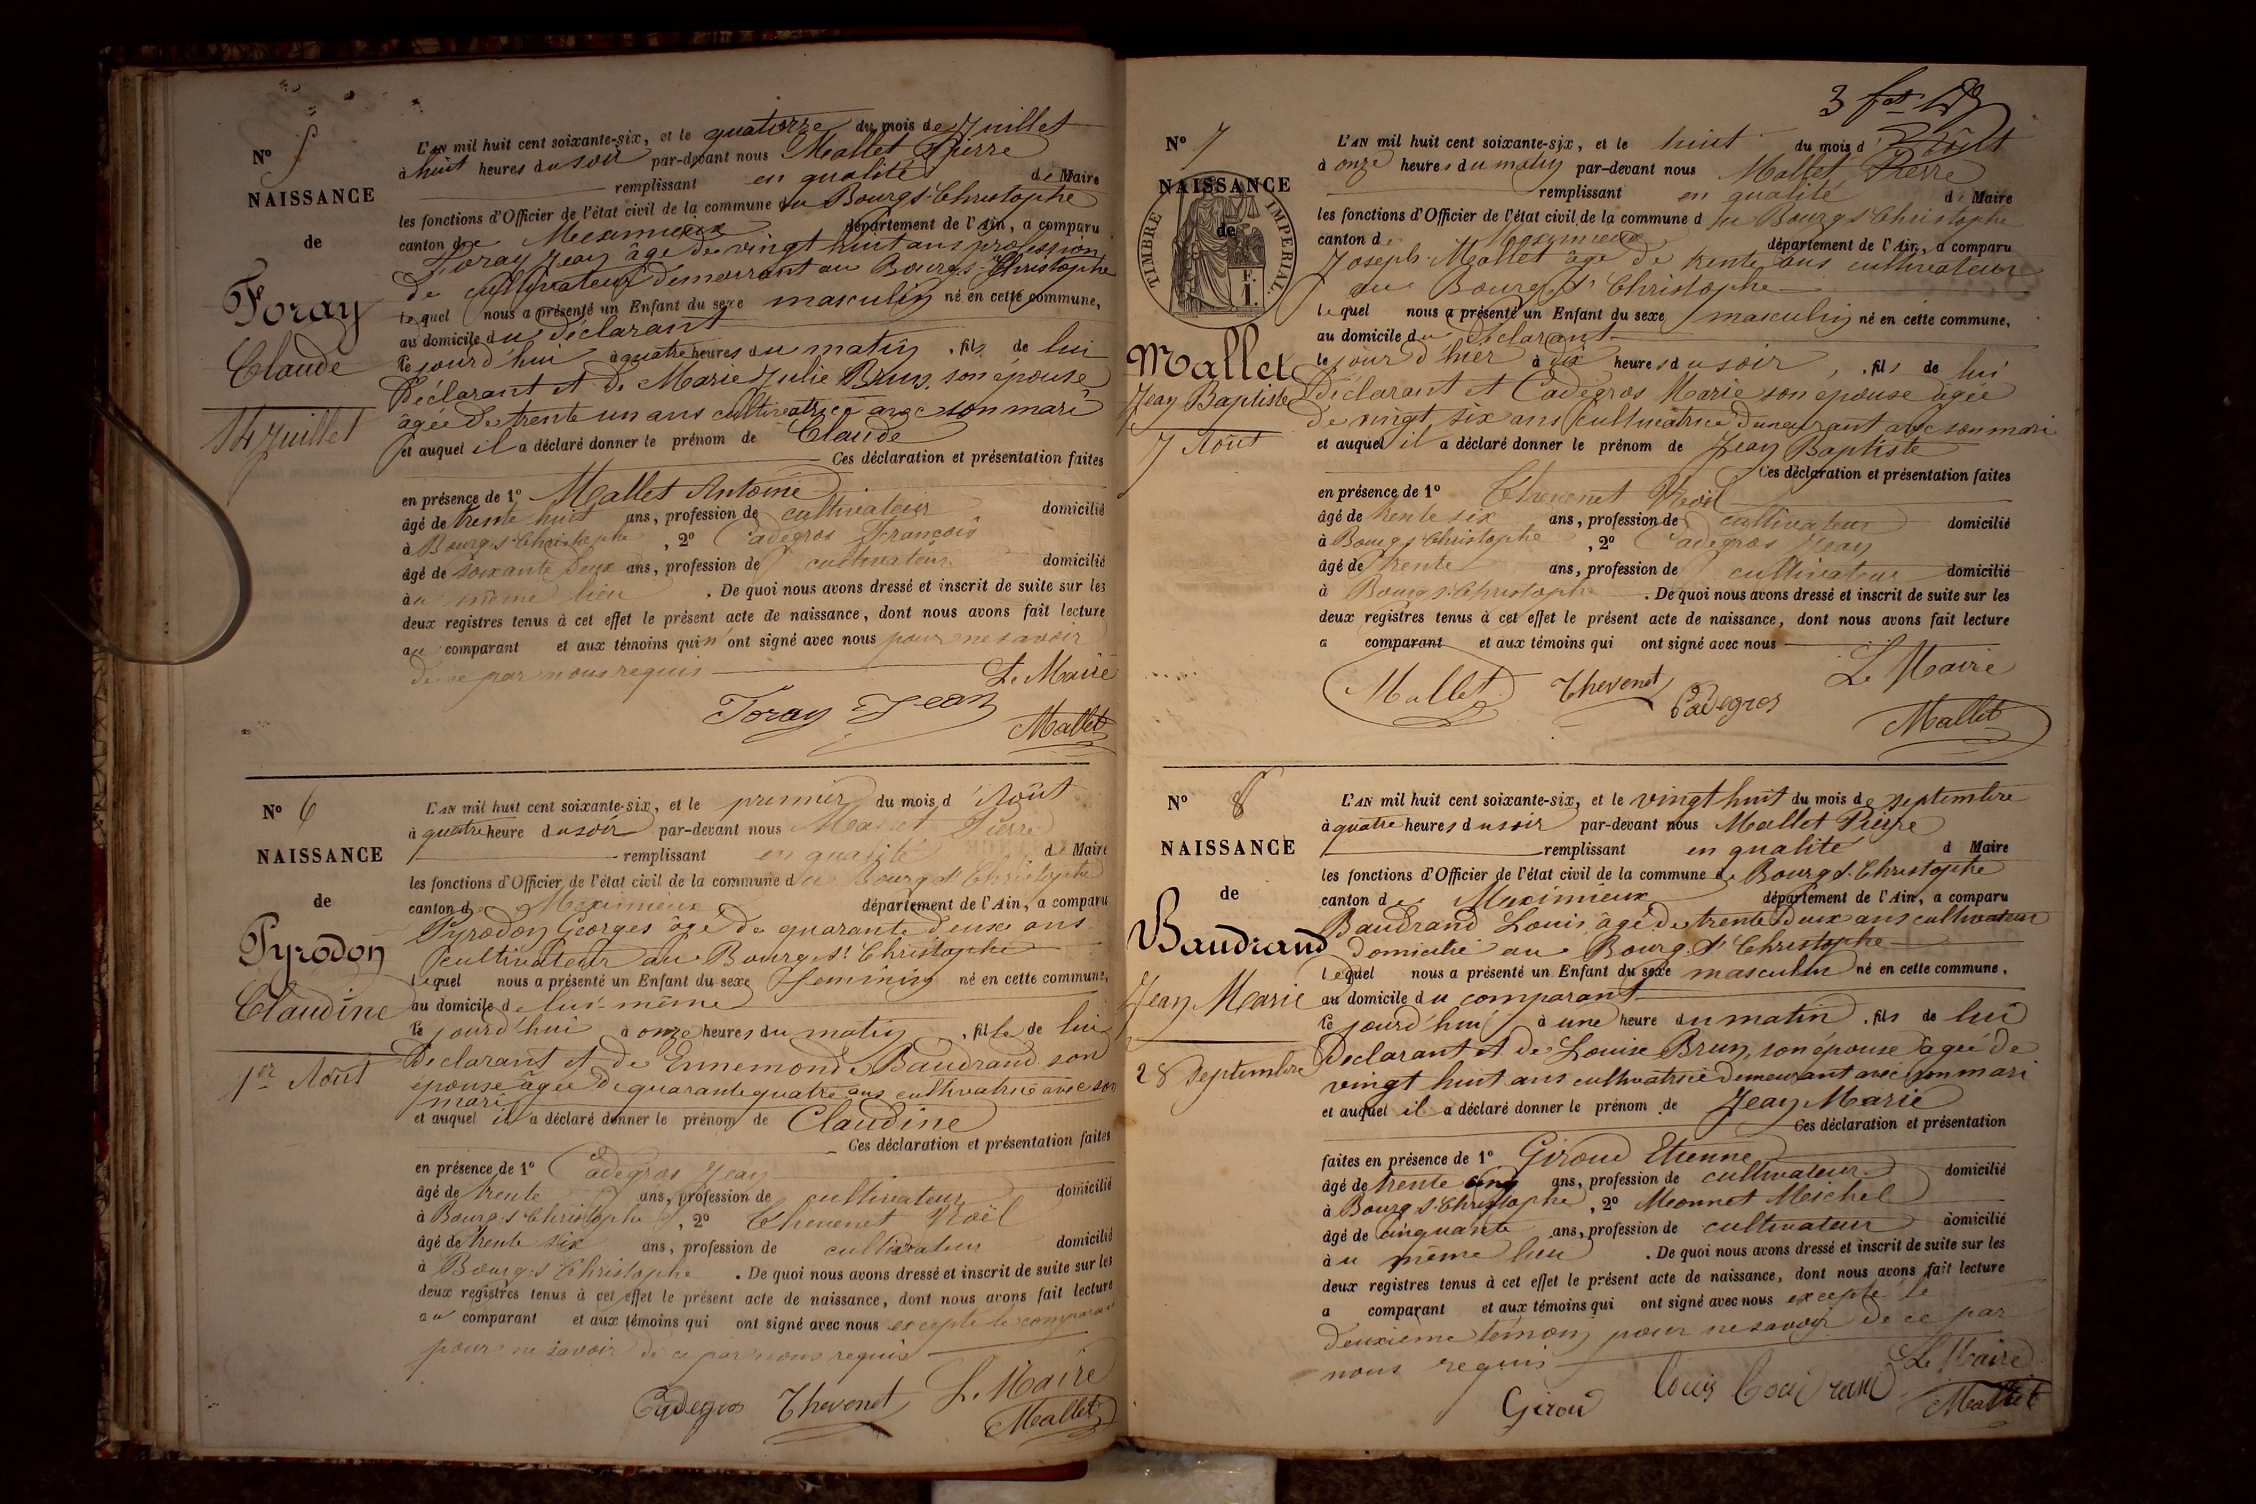 N° 5
NAISSANCE
de
Foray
Claude
14 Juillet
L'AN mil huit cent soixante-six, et le quatorze du mois de Juillet
à huit heures du soir par-devant nous Mallet Pierre
remplissant en qualité de Maire
les fonctions d'Officier de l'état civil de la commune du Bourg St Christophe
canton de Meximieux département de l'Ain, a comparu
Foray Jean âgé de vingt huit ans profession
de cultivateur demeurrant au Bourg St Christophe
lequel nous a présenté un Enfant du sexe masculin né en cette commune,
au domicile du déclarant
le jourd'hui à quatre heures du matin, fils de lui
Déclarant et de Marie Julie Brun, son épouse
âgée de trente un ans cultivatrice avec son mari
et auquel il a déclaré donner le prénom de Claude
Ces déclaration et présentation faites
en présence de 1° Mallet Antoine
âgé de trente huit ans, profession de cultivateur domicilié
à Bourg St Christophe, 2° Cadegros François
âgé de soixante deux ans, profession de cultivateur domicilié
au même lieu. De quoi nous avons dressé et inscrit de suite sur les
deux registres tenus à cet effet le présent acte de naissance, dont nous avons fait lecture
au comparant et aux témoins qui n'ont signé avec nous pour ne savoir
de ce par nous requis
Le Maire
Foray Jean
Mallet
N° 6
NAISSANCE
de
Pyrodon
Claudine
1er Août
L'AN mil huit cent soixante-six, et le premier du mois d'Août
à quatre heure du soir par-devant nous Mallet Pierre
remplissant en qualité de Maire
les fonctions d'Officier de l'état civil de la commune du Bourg St Christophe
canton de Meximieux département de l'Ain, a comparu
Pyrodon Georges âgé de quarante deux ans
cultivateur au Bourg St Christophe
lequel nous a présenté un Enfant du sexe féminin né en cette commune,
au domicile de lui-même
le jourd'hui à onze heures du matin, fille de lui
Déclarant et de Ennemonde Baudrand son
épouse âgée de quarante quatre ans cultivatrice avec son
mari
et auquel il a déclaré donner le prénom de Claudine
Ces déclaration et présentation faites
en présence de 1° Cadegros Jean
âgé de trente ans, profession de cultivateur domicilié
à Bourg St Christophe, 2° Thevenet Noël
âgé de trente six ans, profession de cultivateur domicilié
à Bourg St Christophe. De quoi nous avons dressé et inscrit de suite sur les
deux registres tenus à cet effet le présent acte de naissance, dont nous avons fait lecture
au comparant et aux témoins qui ont signé avec nous excepté le comparant
pour ne savoir de ce par nous requis
Cadegros Thevenet Le Maire
Mallet
N° 7
NAISSANCE
de
TIMBRE IMPERIAL
Mallet
Jean Baptiste
7 Août
L'AN mil huit cent soixante-six, et le huit du mois d'Août
à onze heures du matin par-devant nous Mallet Pierre
remplissant en qualité de Maire
les fonctions d'Officier de l'état civil de la commune du Bourg St Christophe
canton de Meximieux département de l'Ain, a comparu
Joseph Mallet âgé de trente ans cultivateur
au Bourg St Christophe
lequel nous a présenté un Enfant du sexe masculin né en cette commune,
au domicile du Déclarant
le jour d'hier à dix heures du soir, fils de lui
Déclarant et Cadegros Marie son épouse âgée
de vingt six ans cultivatrice demeurant avec son mari
et auquel il a déclaré donner le prénom de Jean Baptiste
Ces déclaration et présentation faites
en présence de 1° Thevenet Noël
âgé de trente six ans, profession de cultivateur domicilié
à Bourg St Christophe, 2° Cadegros Jean
âgé de trente ans, profession de cultivateur domicilié
à Bourg St Christophe. De quoi nous avons dressé et inscrit de suite sur les
deux registres tenus à cet effet le présent acte de naissance, dont nous avons fait lecture
a comparant et aux témoins qui ont signé avec nous
Le Maire
Mallet Thevenet Cadegros
Mallet
N° 8
NAISSANCE
de
Baudrand
Jean Marie
28 Septembre
L'AN mil huit cent soixante-six, et le vingt huit du mois de septembre
à quatre heures du soir par-devant nous Mallet Pierre
remplissant en qualité d Maire
les fonctions d'Officier de l'état civil de la commune de Bourg St Christophe
canton de Meximieux département de l'Ain, a comparu
Baudrand Louis âgé de trente deux ans cultivateur
domicilié au Bourg St Christophe
lequel nous a présenté un Enfant du sexe masculin né en cette commune,
au domicile du comparant
le jourd'hui à une heure du matin, fils de lui
Declarant et de Louise Brun, son épouse agée de
vingt huit ans cultivatrice demeurant avec son mari
et auquel il a déclaré donner le prénom de Jean Marie
Ces déclaration et présentation
faites en présence de 1° Giroud Etienne
âgé de trente cinq ans, profession de cultivateur domicilié
à Bourg St Christophe, 2° Monnet Michel
âgé de cinquante ans, profession de cultivateur domicilié
au même lieu. De quoi nous avons dressé et inscrit de suite sur les
deux registres tenus à cet effet le présent acte de naissance, dont nous avons fait lecture
a comparant et aux témoins qui ont signé avec nous excepté le
deuxième témoin pour ne savoir de ce par
nous requis
Le Maire
Giroud Louis Baudrand
Mallet